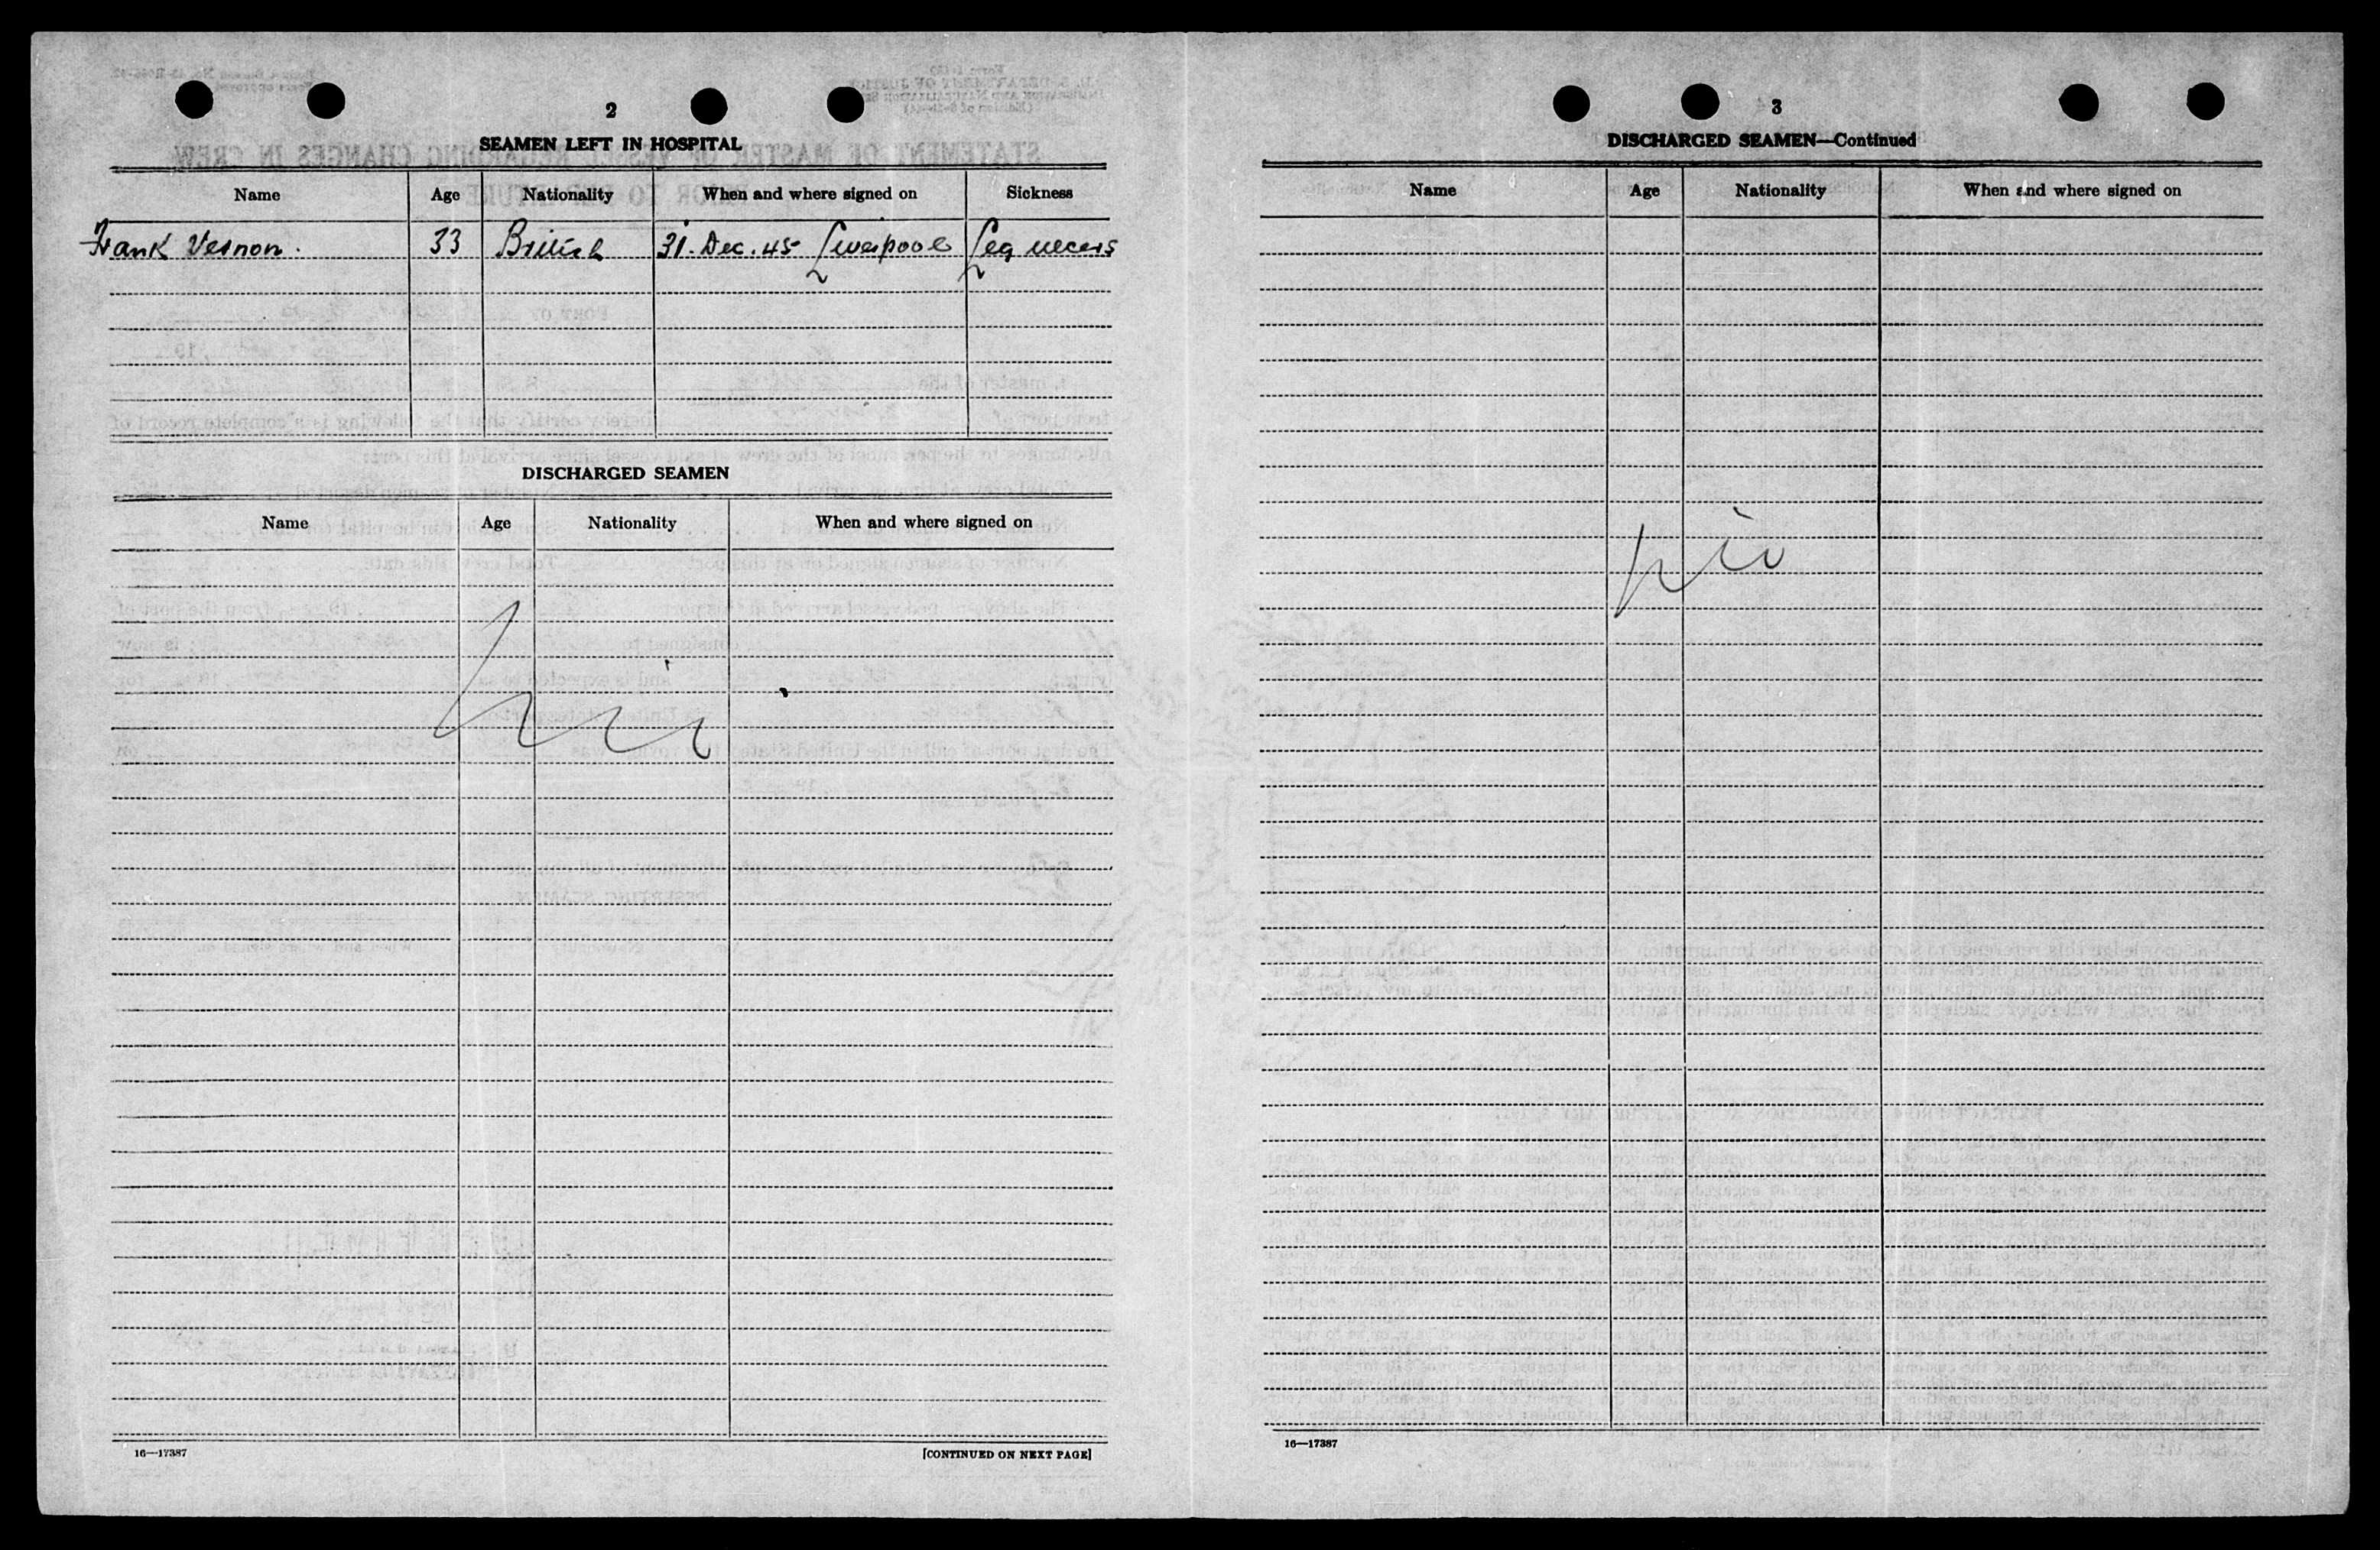 2
SEAMEN LEFT IN HOSPITAL
Name Age Nationality When and where signed on Sickness
Frank Vernon. 33 British 31. Dec. 45 Liverpool Leg ulcers
DISCHARGED SEAMEN
Name Age Nationality When and where signed on
Nil
16—17387 [CONTINUED ON NEXT PAGE]
3
DISCHARGED SEAMEN—Continued
Name Age Nationality When and where signed on
Nil
16—17387